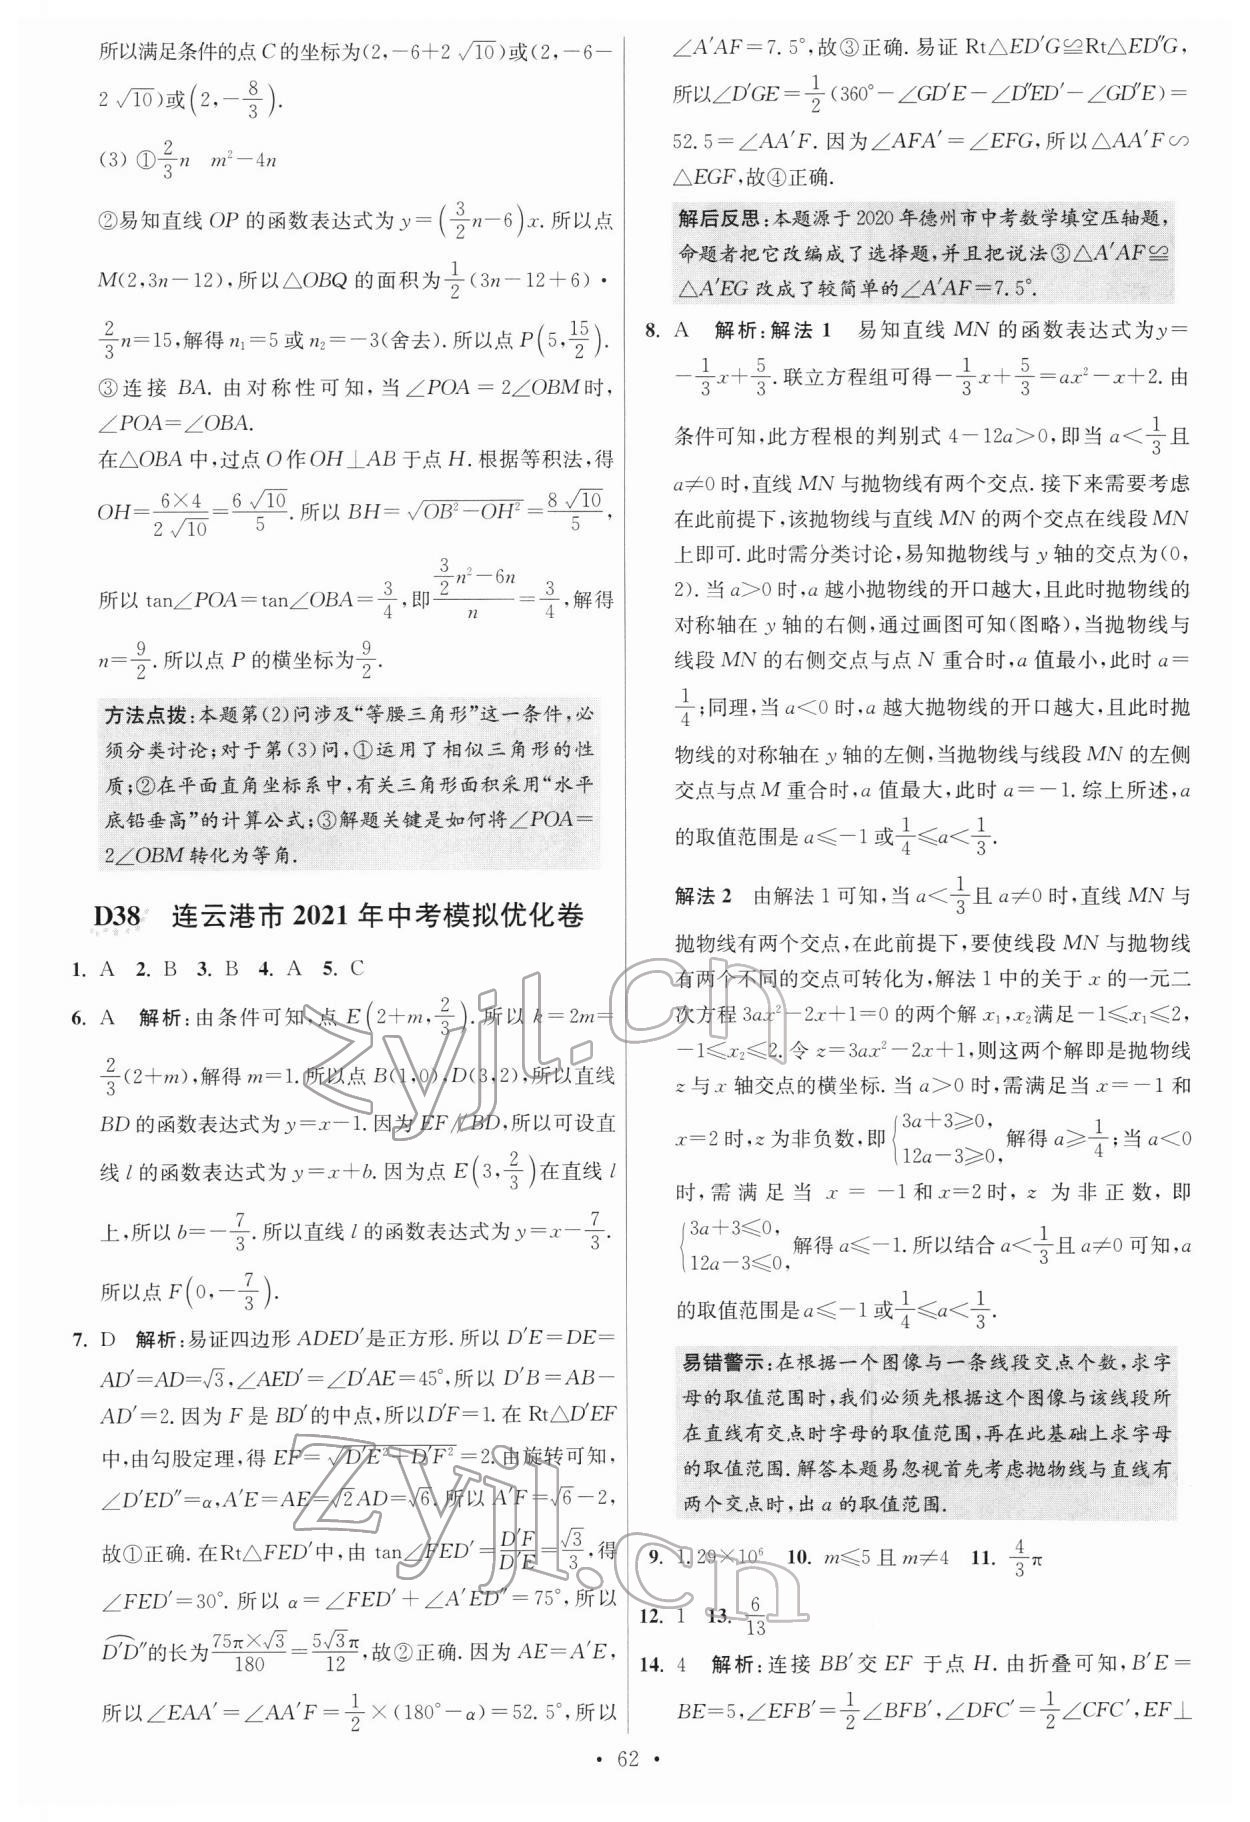 所以满足条件的点 C 的坐标为(2,-6+2√10)或(2,-6-
2√10)或(2,-8/3).
(3) ①2/3n  m²-4n
②易知直线 OP 的函数表达式为 y=(3/2n-6)x. 所以点
M(2,3n-12),所以△OBQ 的面积为1/2(3n-12+6)·
2/3n=15,解得 n₁=5 或 n₂=-3(舍去).所以点 P(5,15/2).
③连接 BA. 由对称性可知,当∠POA=2∠OBM时,
∠POA=∠OBA.
在△OBA 中,过点 O 作 OH⊥AB 于点 H. 根据等积法,得
OH=6×4/2√10=6√10/5. 所以 BH=√(OB²-OH²)=8√10/5,
所以 tan∠POA=tan∠OBA=3/4,即(3/2n²-6n)/n=3/4,解得
n=9/2. 所以点 P 的横坐标为9/2.
方法点拨:本题第(2)问涉及“等腰三角形”这一条件,必
须分类讨论;对于第(3)问,①运用了相似三角形的性
质;②在平面直角坐标系中,有关三角形面积采用“水平
底铅垂高”的计算公式;③解题关键是如何将∠POA=
2∠OBM 转化为等角.
D38 连云港市 2021 年中考模拟优化卷
1. A 2. B 3. B 4. A 5. C
6. A 解析:由条件可知,点 E(2+m,2/3). 所以 k=2m=
2/3(2+m),解得 m=1. 所以点 B(1,0),D(3,2),所以直线
BD 的函数表达式为 y=x-1. 因为 EF∥BD,所以可设直
线 l 的函数表达式为 y=x+b. 因为点 E(3,2/3)在直线 l
上,所以 b=-7/3. 所以直线 l 的函数表达式为 y=x-7/3.
所以点 F(0,-7/3).
7. D 解析:易证四边形 ADED′是正方形. 所以 D′E=DE=
AD′=AD=√3,∠AED′=∠D′AE=45°,所以 D′B=AB-
AD′=2. 因为 F 是 BD′的中点,所以D′F=1. 在 Rt△D′EF
中,由勾股定理,得 EF=√(D′E²+D′F²)=2. 由旋转可知,
∠D′ED″=α,A′E=AE=√2AD=√6. 所以 A′F=√6-2,
故①正确. 在Rt△FED′中,由 tan∠FED′=D′F/D′E=√3/3,得
∠FED′=30°. 所以 α=∠FED′+∠A′ED″=75°,所以
D′D″的长为75π×√3/180=5√3π/12,故②正确. 因为 AE=A′E,
所以∠EAA′=∠AA′F=1/2×(180°-α)=52.5°,所以
∠A′AF=7.5°,故③正确. 易证 Rt△ED′G≌Rt△ED″G,
所以∠D′GE=1/2(360°-∠GD′E-∠D″ED′-∠GD″E)=
52.5=∠AA′F. 因为∠AFA′=∠EFG,所以△AA′F∽
△EGF,故④正确.
解后反思:本题源于 2020 年德州市中考数学填空压轴题,
命题者把它改编成了选择题,并且把说法③△A′AF≌
△A′EG 改成了较简单的∠A′AF=7.5°.
8. A 解析:解法 1 易知直线 MN 的函数表达式为y=
-1/3x+5/3. 联立方程组可得-1/3x+5/3=ax²-x+2. 由
条件可知,此方程根的判别式 4-12a>0,即当 a<1/3且
a≠0 时,直线 MN 与抛物线有两个交点. 接下来需要考虑
在此前提下,该抛物线与直线 MN 的两个交点在线段 MN
上即可. 此时需分类讨论,易知抛物线与 y 轴的交点为(0,
2). 当 a>0 时,a 越小抛物线的开口越大,且此时抛物线的
对称轴在 y 轴的右侧,通过画图可知(图略),当抛物线与
线段 MN 的右侧交点与点 N 重合时,a 值最小,此时 a=
1/4;同理,当 a<0 时,a 越大抛物线的开口越大,且此时抛
物线的对称轴在 y 轴的左侧,当抛物线与线段 MN 的左侧
交点与点 M 重合时,a 值最大,此时 a=-1. 综上所述,a
的取值范围是 a≤-1 或1/4≤a<1/3.
解法 2 由解法 1 可知,当 a<1/3且 a≠0 时,直线 MN 与
抛物线有两个交点,在此前提下,要使线段 MN 与抛物线
有两个不同的交点可转化为,解法 1 中的关于 x 的一元二
次方程 3ax²-2x+1=0 的两个解 x₁,x₂满足-1≤x₁≤2,
-1≤x₂≤2. 令 z=3ax²-2x+1,则这两个解即是抛物线
z 与 x 轴交点的横坐标. 当 a>0 时,需满足当 x=-1 和
x=2 时,z 为非负数,即{3a+3≥0, 12a-3≥0, 解得 a≥1/4;当 a<0
时,需满足当 x=-1和x=2时,z 为非正数,即
{3a+3≤0, 12a-3≤0, 解得 a≤-1. 所以结合 a<1/3且 a≠0 可知,a
的取值范围是 a≤-1 或1/4≤a<1/3.
易错警示:在根据一个图像与一条线段交点个数,求字
母的取值范围时,我们必须先根据这个图像与该线段所
在直线有交点时字母的取值范围,再在此基础上求字母
的取值范围. 解答本题易忽视首先考虑抛物线与直线有
两个交点时,出 a 的取值范围.
9. 1.29×10⁶ 10. m≤5 且 m≠4 11. 4/3π
12. 1 13. 6/13
14. 4 解析:连接 BB′交 EF 于点 H. 由折叠可知,B′E=
BE=5,∠EFB′=1/2∠BFB′,∠DFC′=1/2∠CFC′,EF⊥
· 62 ·
zyjl.cn
zyjl.cn